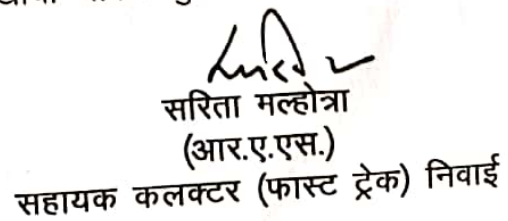 सरिता मल्होत्रा
(आर.ए.एस.)
सहायक कलक्टर (फास्ट ट्रेक) निवाई